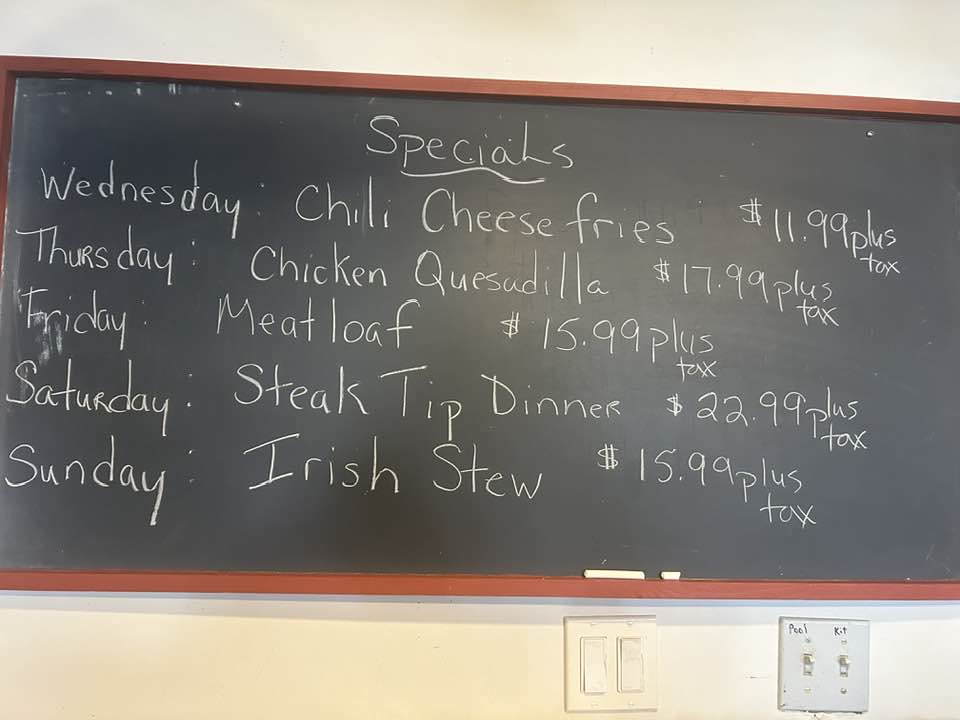 Specials
Wednesday: Chili Cheese fries $11.99 plus tax
Thursday: Chicken Quesadilla $17.99 plus tax
Friday: Meatloaf $15.99 plus tax
Saturday: Steak Tip Dinner $22.99 plus tax
Sunday: Irish Stew $15.99 plus tax
Pool Kit